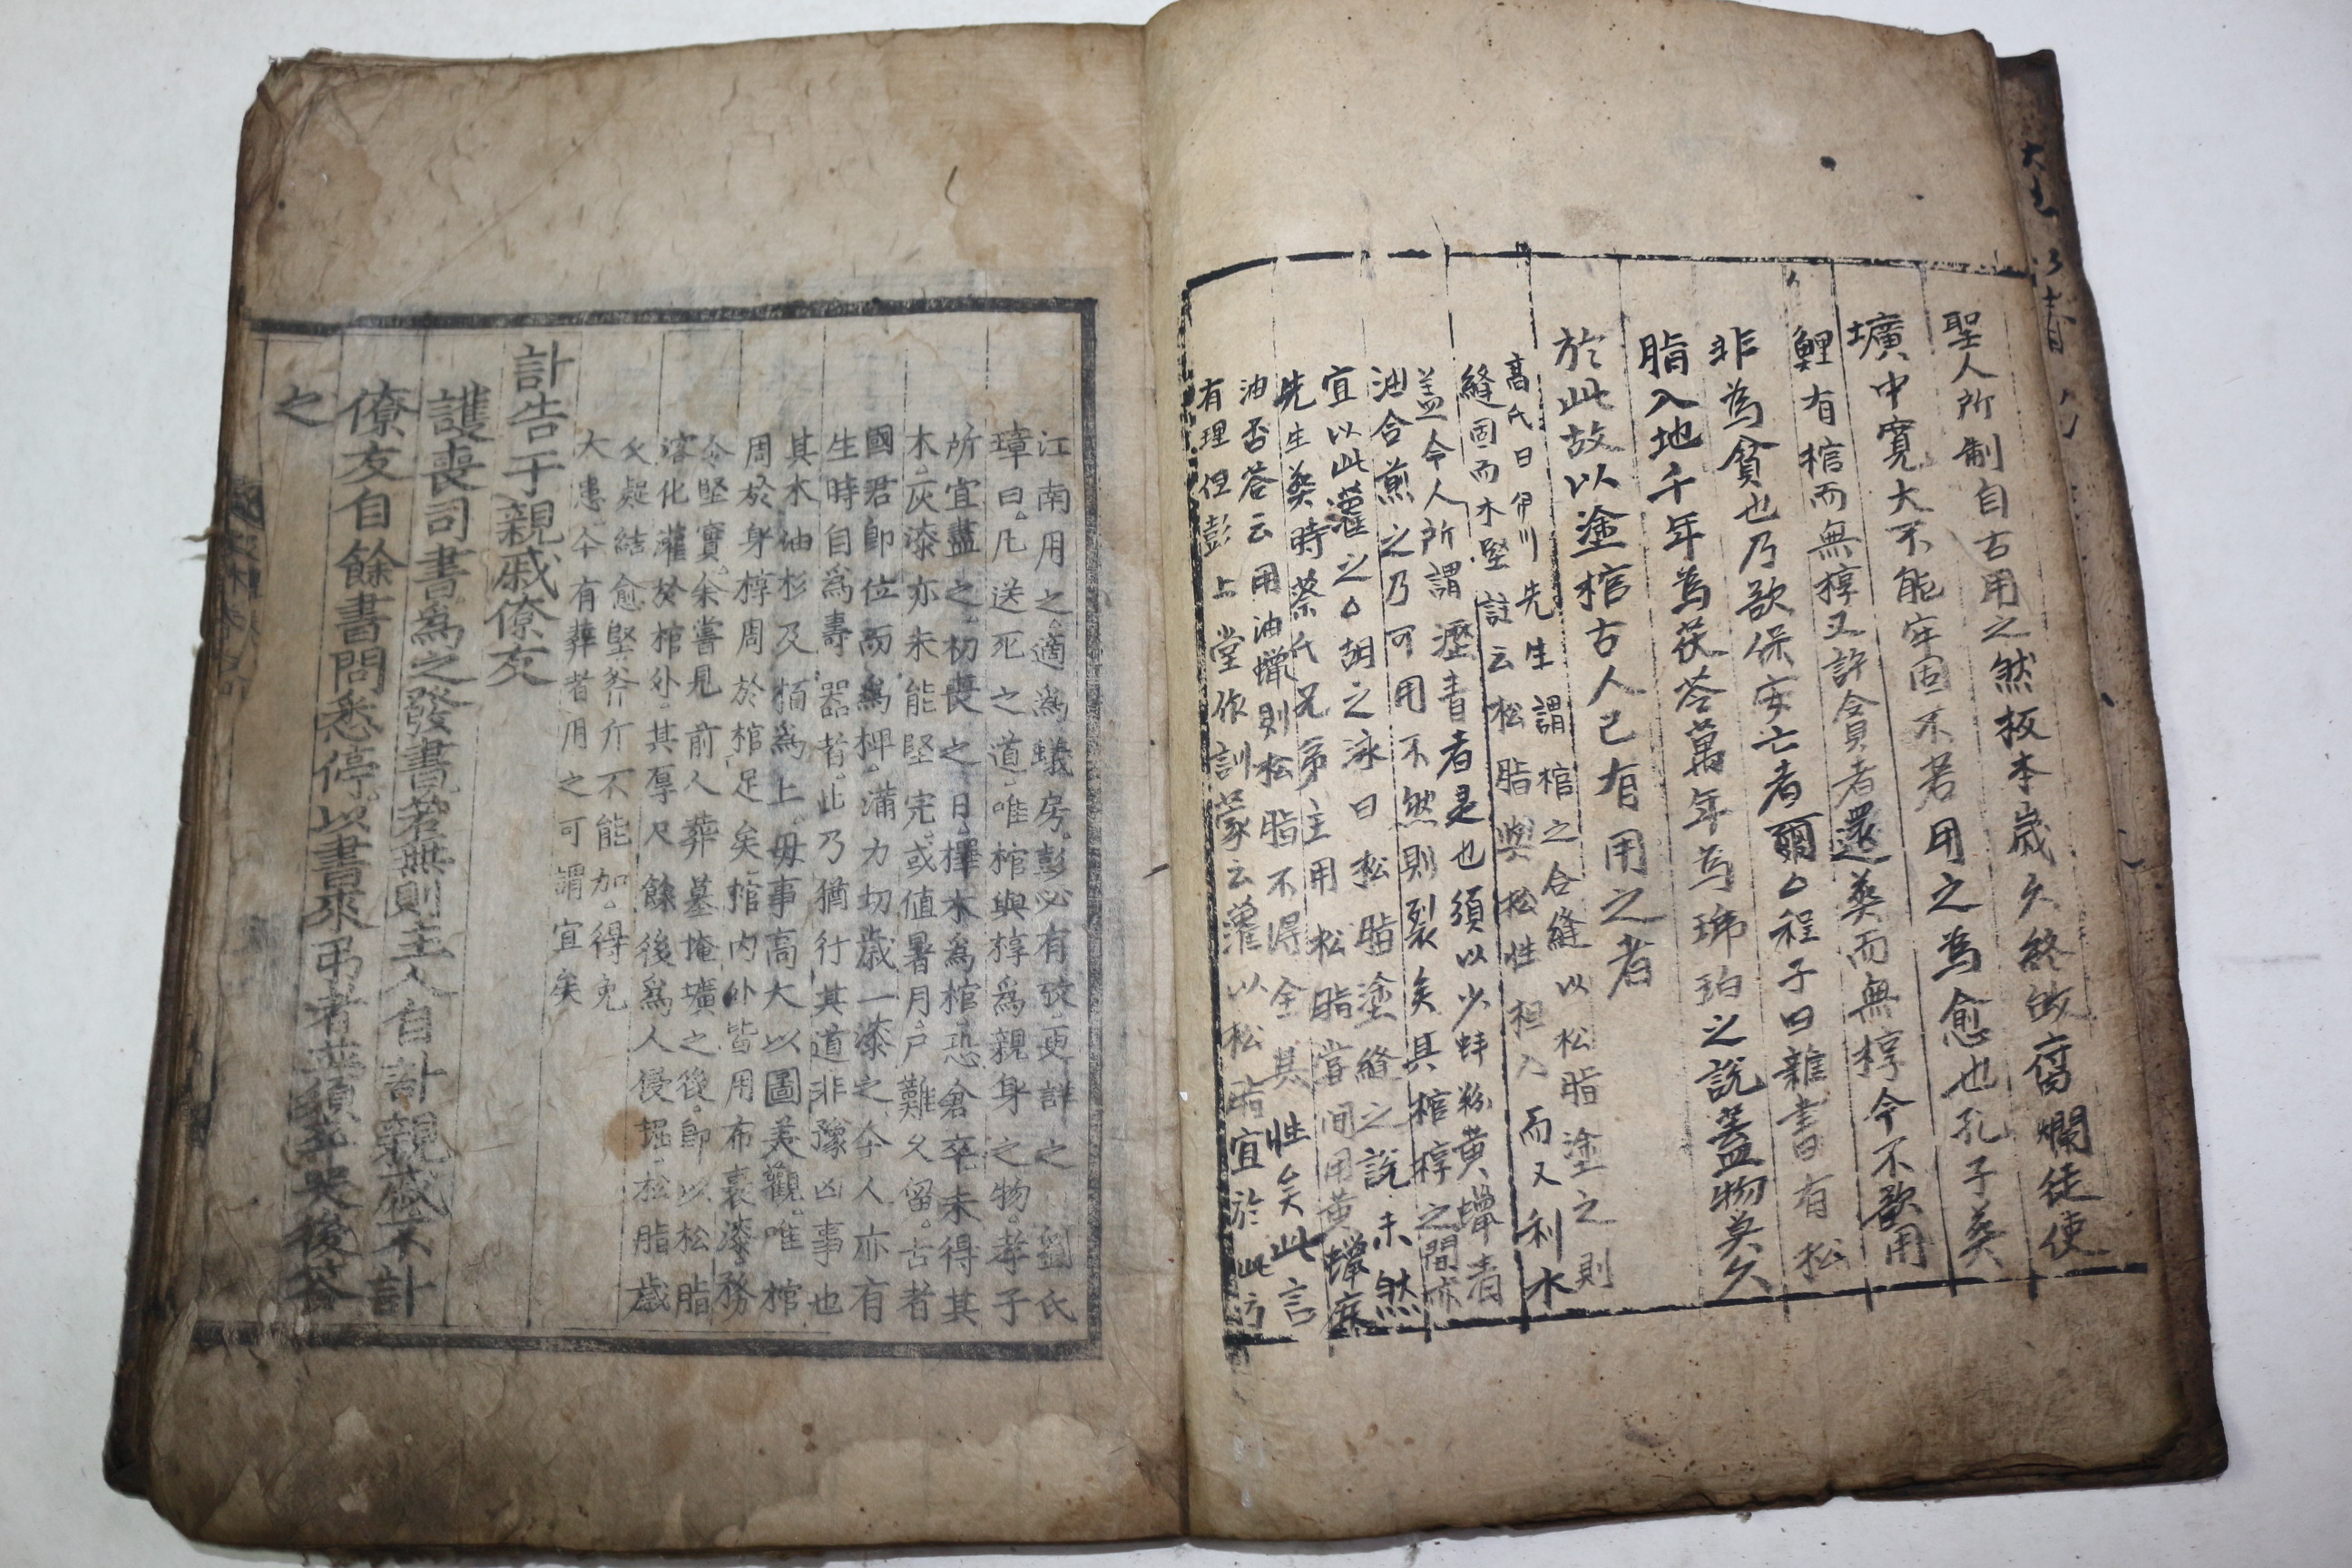 聖人所制自古用之然板本歲久終敀腐爛徒使
壙中寬大不能牢固不若用之為愈也孔子葬
鯉有棺而無椁又許貪者還葬而無椁今不欲用
非為貧也乃欲保安亡者爾〇程子曰雜書有松
脂入地千年為茯苓萬年為琥珀之說蓋物莫久
於此故以塗棺古人已有用之者
高氏曰伊川先生謂棺之合縫以松脂塗之則
縫固而木堅註云松脂與松性相入而又利水
盖今人所謂瀝青者是也須以少蚌粉黄蠟清
油合煎之乃可用不然則裂矣其棺椁之間亦
宜以此灌之〇胡之泳曰松脂塗縫之說未然
先生葬時蔡氏兄弟主用松脂嘗問用黄蠟麻
油否荅云用油蠟則松脂不得全其性矣此言
有理但彭上堂作訓蒙云灌以松脂宜於此方
江南用之適爲蟻房彭必有攷更詳之 劉氏
璋曰凡送死之道唯棺與椁爲親身之物孝子
所宜盡之初喪之日擇木爲棺恐倉卒未得其
木灰漆亦未能堅完或値暑月尸難久留古者
國君卽位而爲椑蒲力切歲一漆之今人亦有
生時自爲壽器者此乃猶行其道非豫凶事也
其木油杉及栢爲上毋事高大以圖美觀唯棺
周於身椁周於棺足矣棺內外皆用布裹漆務
令堅實余嘗見前人葬墓掩壙之後卽以松脂
溶化灌於棺外其厚尺餘後爲人侵掘松脂歲
久凝結愈堅斧斤不能加得免
大患今有葬者用之可謂宜矣
訃告于親戚僚友
護喪司書爲之發書若無則主人自訃親戚不訃
僚友自餘書問悉停以書來弔者並須卒哭後答
之